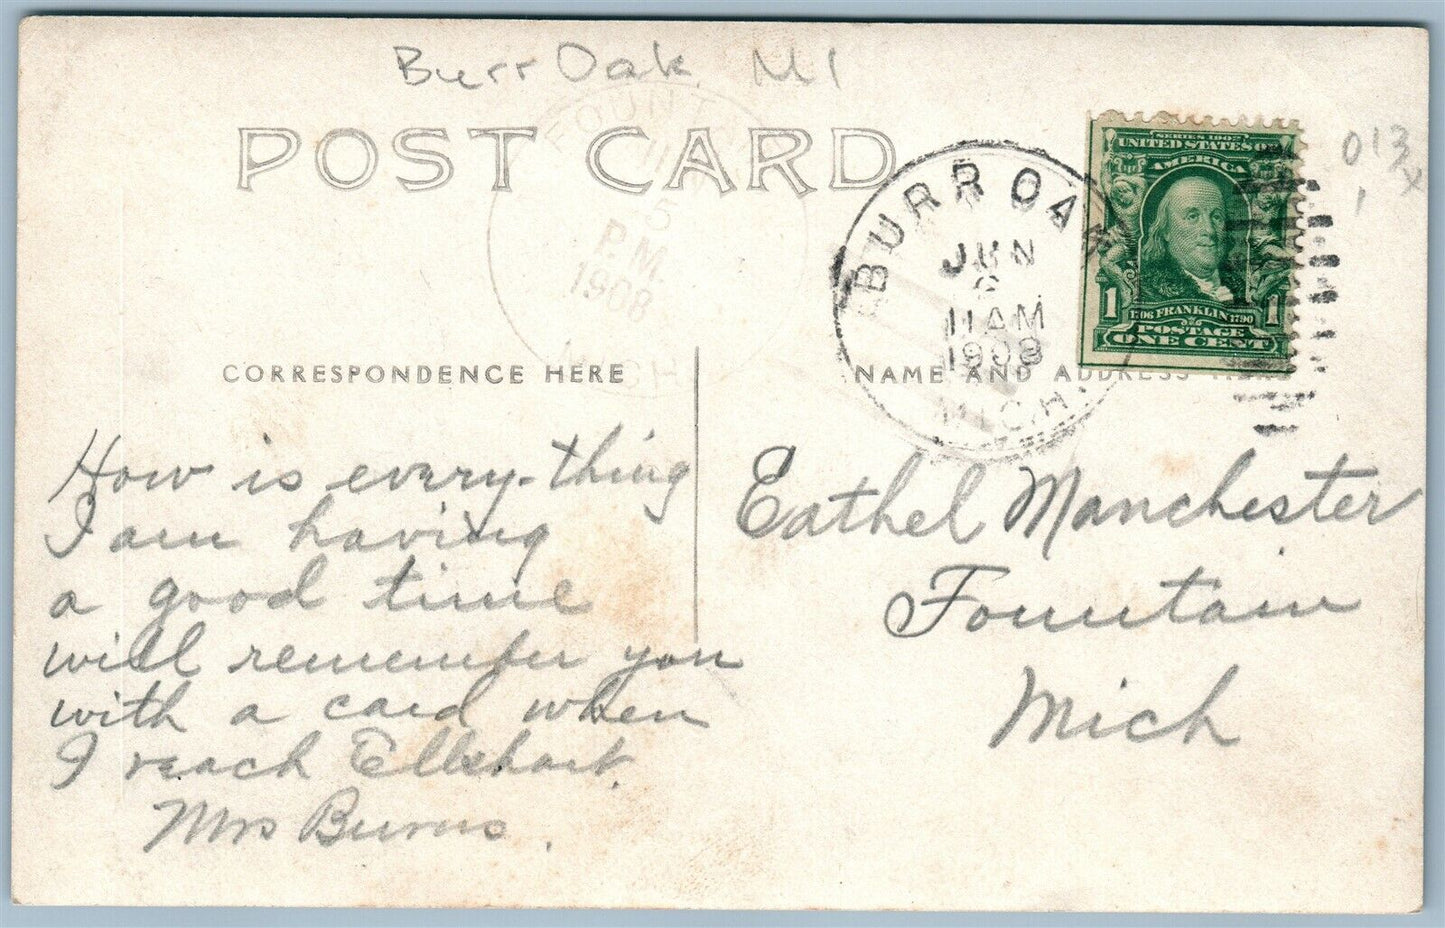 Burr Oak, MI
POST CARD
FOUNT
5
P.M.
1908
MICH
BURR OAK
JUN
11 AM
1908
MICH.
SERIES 1902
UNITED STATES OF
AMERICA
1 1
1706 FRANKLIN 1790
POSTAGE
ONE CENT
013
CORRESPONDENCE HERE
NAME AND ADDRESS HERE
How is every-thing
I am having
a good time
will remember you
with a card when
I reach Elkhart.
Mrs Burns.
Eathel Manchester
Fountain
Mich